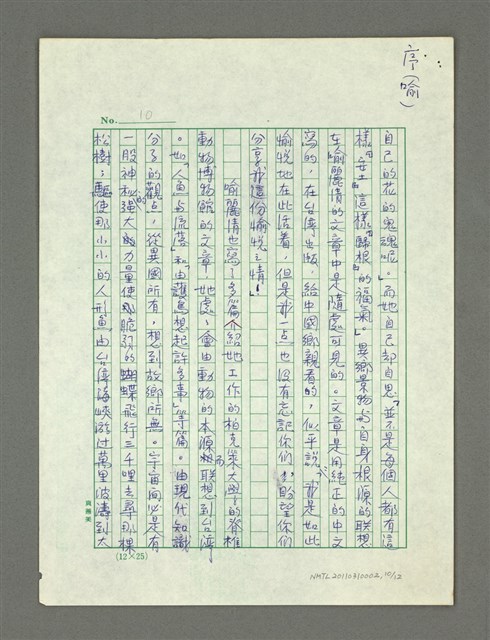 序(喻)
No. 10
自己的花的鬼魂呢。而她自己却自思"並不是每個人都有這
樣'安'這樣'歸根'的福氣。"異鄉景物与自身根源的联想
在喻麗清的文章中是隨處可見的。文章是用純正的中文
寫的，在台湾出版，給中國鄉親看的，似乎說："我是如此
愉悅地在此活着，但是我一点也没有忘記你們，盼望你们
分享我這份愉悅之情。"
喻麗清也寫了多篇介紹她工作的柏克萊大學的脊椎
動物博物館的文章，她處處會由動物的本源而联想到台湾
。如"人魚的流落"和"由護鳥想起許多事"等篇。由現代知識
分子的觀点，從異國所有，想到故鄉所無。宇宙间必是有
一股神秘的强大力量使那脆弱的蝴蝶飛行三千哩去尋那棵
松樹；驅使那小小的人形魚由台湾海峽游过萬里波濤到大
(12×25)
NMTL20110310002,10/12